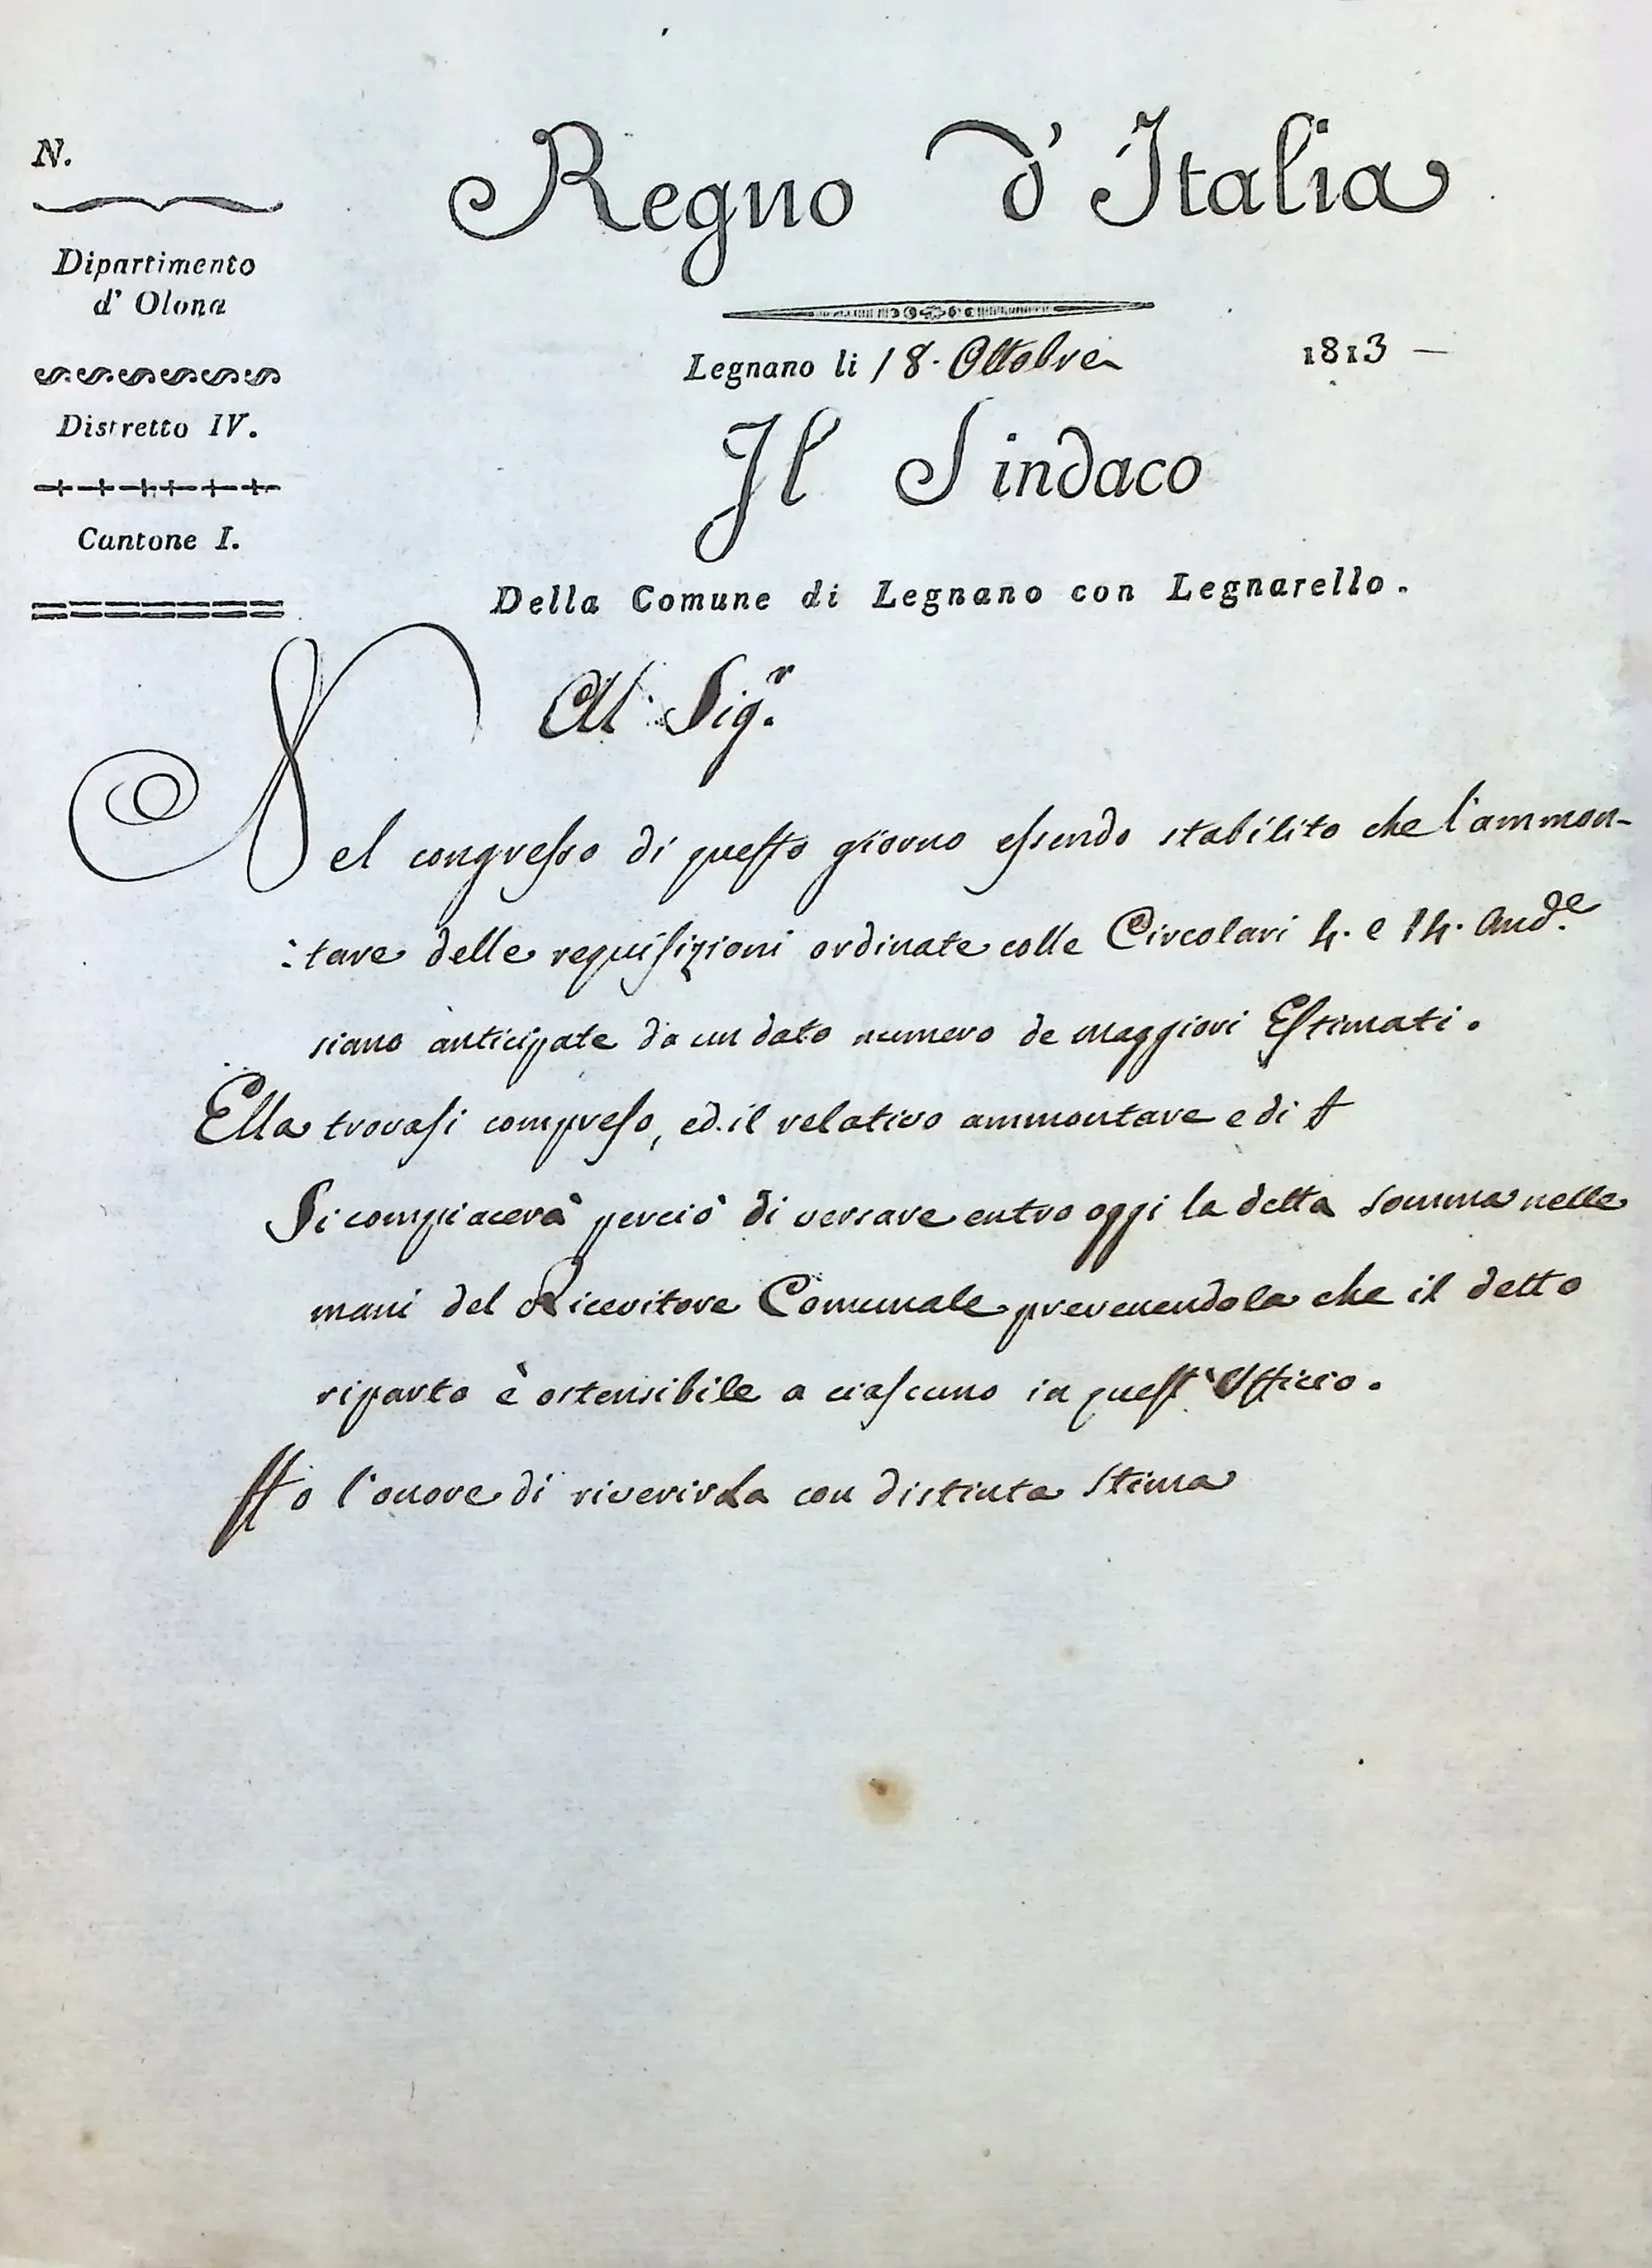 N.
Dipartimento
d' Olona
Distretto IV.
Cantone I.
Regno d'Italia
Legnano li 18. Ottobre 1813 —
Il Sindaco
Della Comune di Legnano con Legnarello.
Al Sig.r
Nel congresso di questo giorno essendo stabilito che l'ammon-
:tare delle requisizioni ordinate colle Circolari 4. e 14. And.e
siano anticipate da un dato numero de maggiori Estimati.
Ella trovasi compreso, ed il relativo ammontare e di £
Si compiacerà perciò di versare entro oggi la detta somma nelle
mani del Ricevitore Comunale prevenendola che il detto
riparto è ostensibile a ciascuno in quest'Officio.
Ho l'onore di riverirla con distinta stima